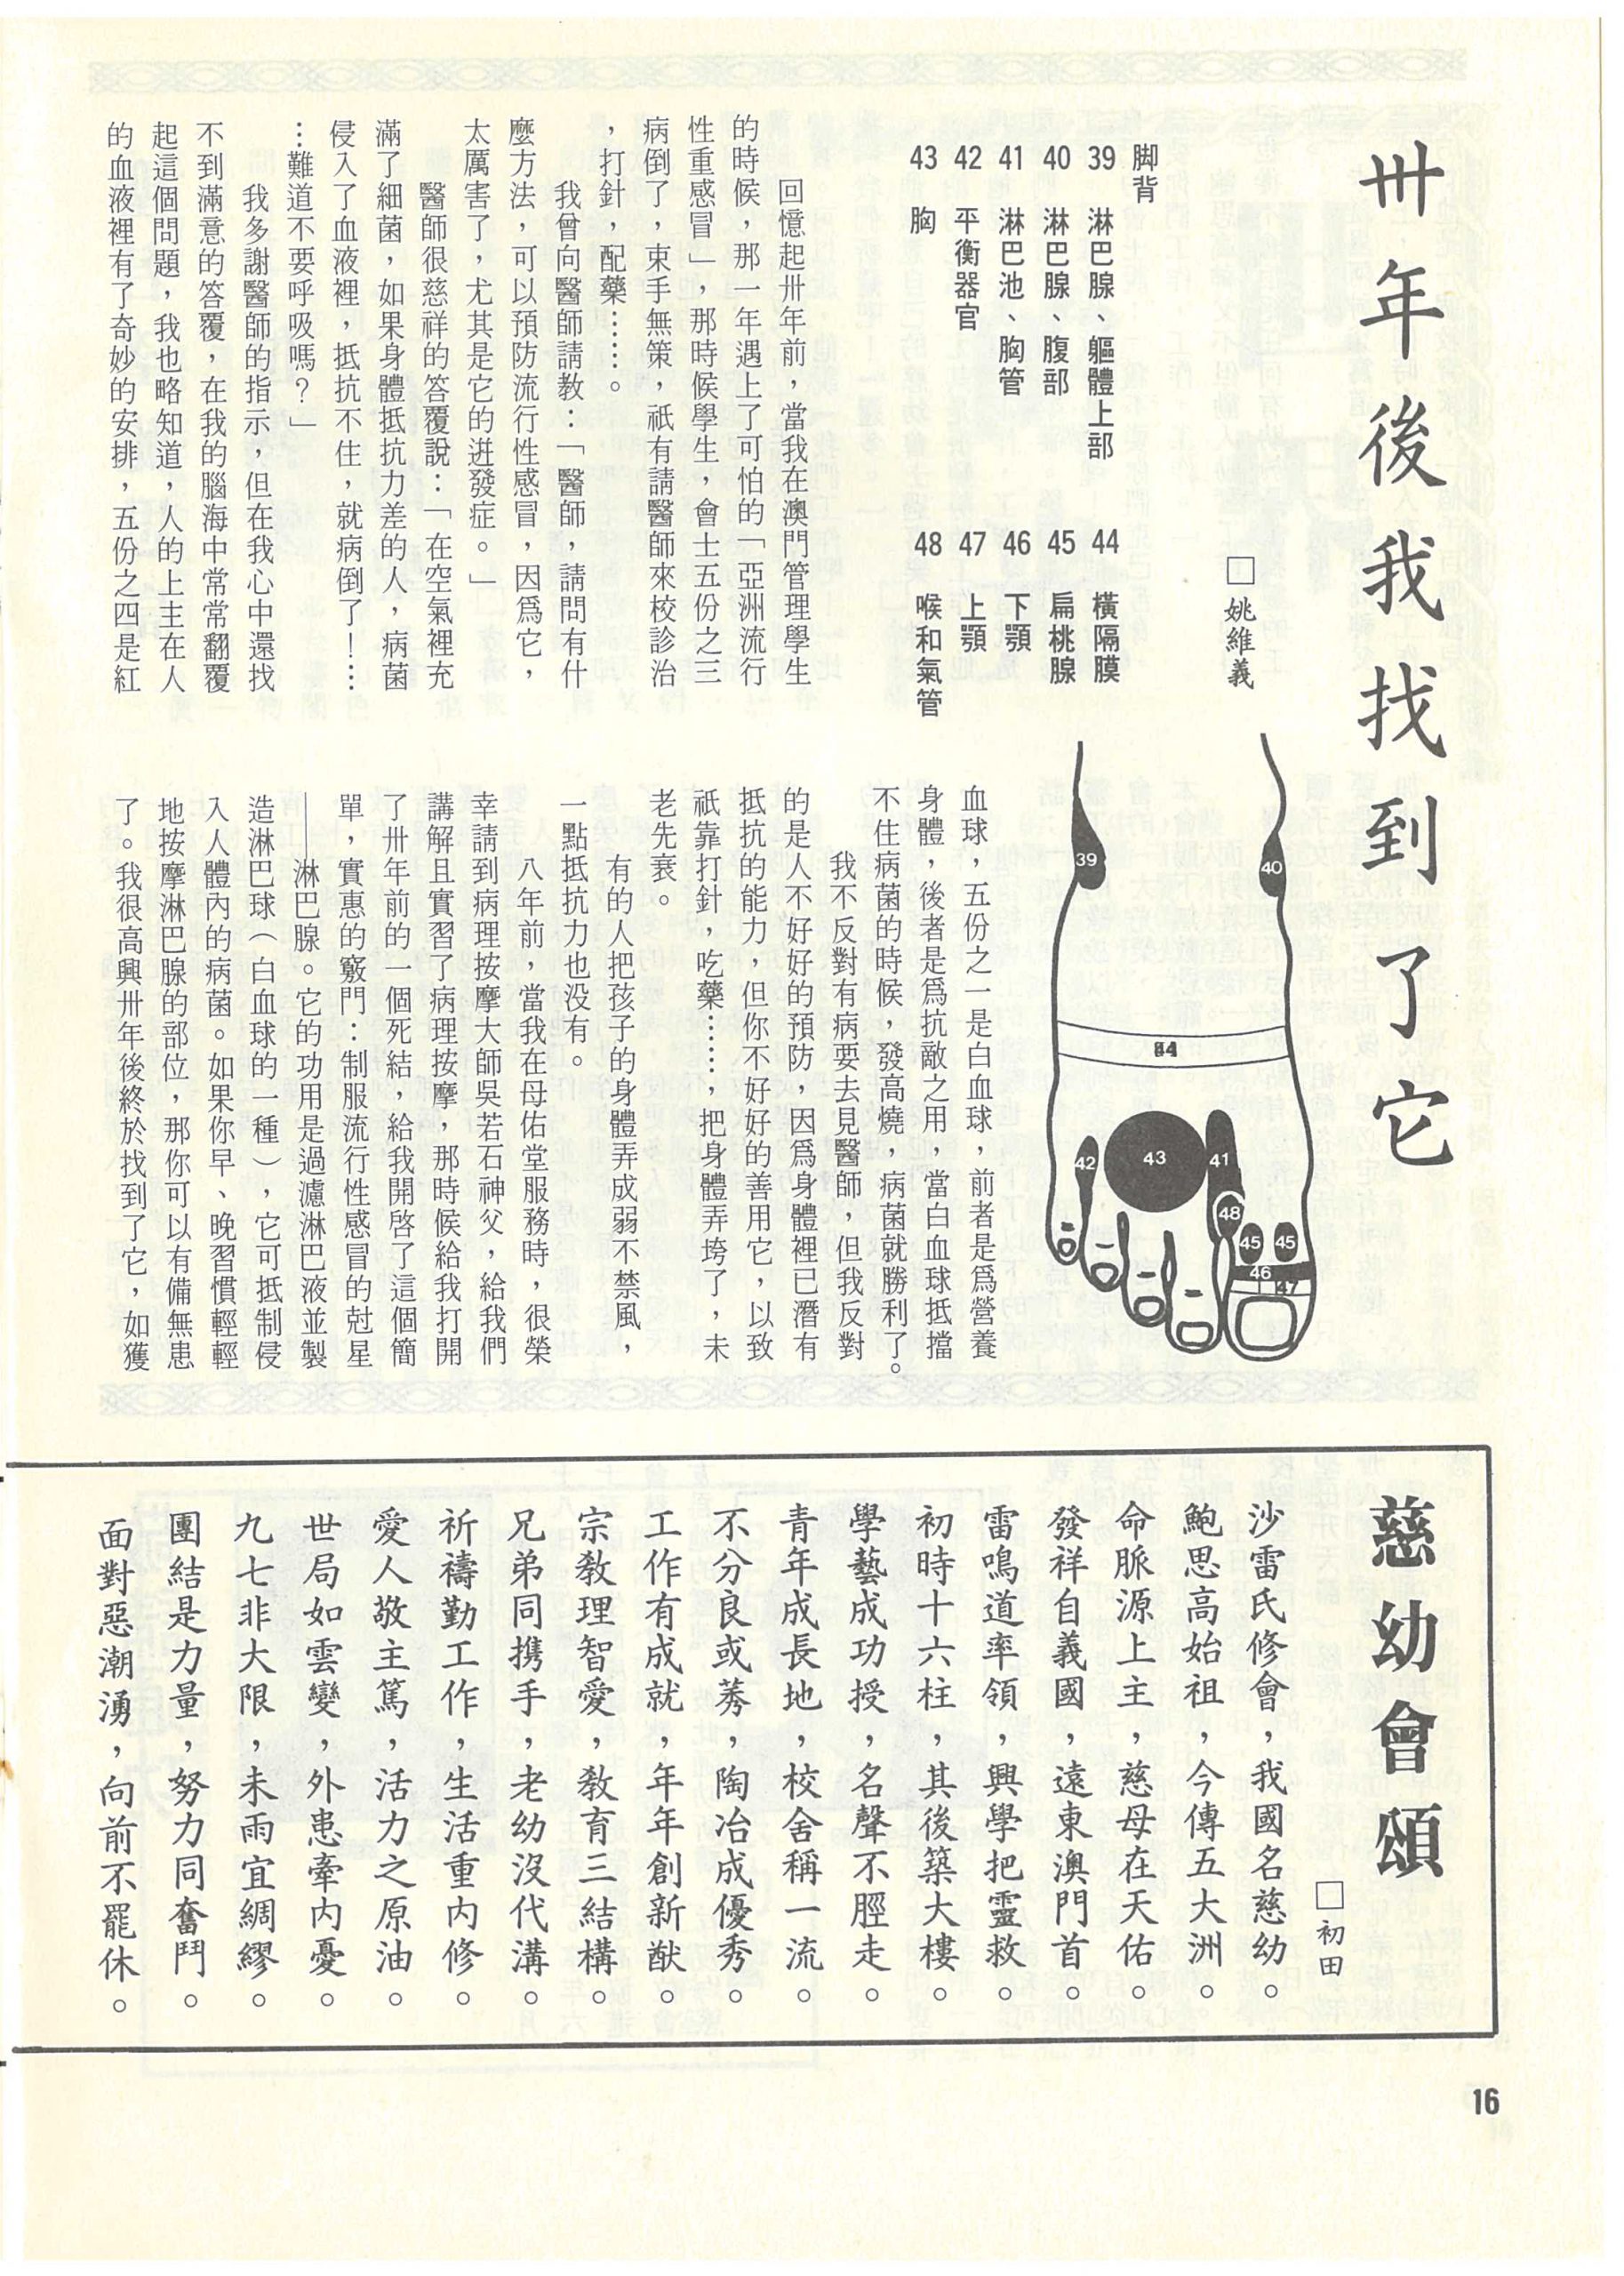 卅年後我找到了它
□姚維義
脚背
39 淋巴腺、軀體上部
40 淋巴腺、腹部
41 淋巴池、胸管
42 平衡器官
43 胸
44 橫隔膜
45 扁桃腺
46 下顎
47 上顎
48 喉和氣管
39
40
44
42
43
41
48
45
45
46
47
回憶起卅年前，當我在澳門管理學生
的時候，那一年遇上了可怕的「亞洲流行
性重感冒」，那時候學生，會士五份之三
病倒了，束手無策，祇有請醫師來校診治
，打針，配藥……。
我曾向醫師請教：「醫師，請問有什
麼方法，可以預防流行性感冒，因爲它，
太厲害了，尤其是它的迸發症。」
醫師很慈祥的答覆說：「在空氣裡充
滿了細菌，如果身體抵抗力差的人，病菌
侵入了血液裡，抵抗不住，就病倒了！…
…難道不要呼吸嗎？」
我多謝醫師的指示，但在我心中還找
不到滿意的答覆，在我的腦海中常常翻覆
起這個問題，我也略知道，人的上主在人
的血液裡有了奇妙的安排，五份之四是紅
血球，五份之一是白血球，前者是爲營養
身體，後者是爲抗敵之用，當白血球抵擋
不住病菌的時候，發高燒，病菌就勝利了。
我不反對有病要去見醫師，但我反對
的是人不好好的預防，因爲身體裡已潛有
抵抗的能力，但你不好好的善用它，以致
祇靠打針，吃藥……，把身體弄垮了，未
老先衰。
有的人把孩子的身體弄成弱不禁風，
一點抵抗力也没有。
八年前，當我在母佑堂服務時，很榮
幸請到病理按摩大師吳若石神父，給我們
講解且實習了病理按摩，那時候給我打開
了卅年前的一個死結，給我開啓了這個簡
單，實惠的竅門：制服流行性感冒的尅星
——淋巴腺。它的功用是過濾淋巴液並製
造淋巴球（白血球的一種），它可抵制侵
入人體內的病菌。如果你早、晚習慣輕輕
地按摩淋巴腺的部位，那你可以有備無患
了。我很高興卅年後終於找到了它，如獲
慈幼會頌
□初田
沙雷氏修會，我國名慈幼。
鮑思高始祖，今傳五大洲。
命脈源上主，慈母在天佑。
發祥自義國，遠東澳門首。
雷鳴道率領，興學把靈救。
初時十六柱，其後築大樓。
學藝成功授，名聲不脛走。
青年成長地，校舍稱一流。
不分良或莠，陶冶成優秀。
工作有成就，年年創新猷。
宗教理智愛，教育三結構。
兄弟同携手，老幼沒代溝。
祈禱勤工作，生活重内修。
愛人敬主篤，活力之原油。
世局如雲變，外患牽内憂。
九七非大限，未雨宜綢繆。
團結是力量，努力同奮鬥。
面對惡潮湧，向前不罷休。
16